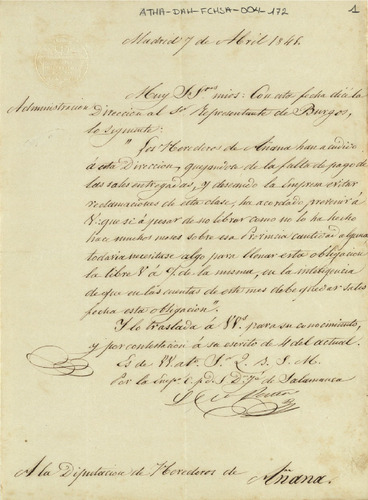 ATHA-DAH-FCHSA-004-172
1
Madrid 7 de Abril 1846.
Administración
Muy S.res mios: Con esta fecha dice la
Dirección al Sr. Representante de Burgos,
lo siguiente:
"Los Herederos de Añana han acudido
á esta Direccion, quejandose de la falta de pago de
las sales entregadas, y deseando la Empresa evitar
reclamaciones de esta clase, ha acordado prevenir á
V. que si á pesar de no librar como no lo ha hecho
hace muchos meses sobre esa Provincia cantidad alguna
todavia necesitase algo para llenar esta obligacion
la libre V. á de la misma, en la inteligencia
de que en las cuentas de este mes debe quedar satis
fecha esta obligacion".
Y lo traslada á VV. para su conocimiento,
y por contestacion á su escrito de 4 del actual.
Es de VV. at.o S. Q. B. S. M.
Por la Emp.a de Salamanca
A la Diputacion de Herederos de Añana.